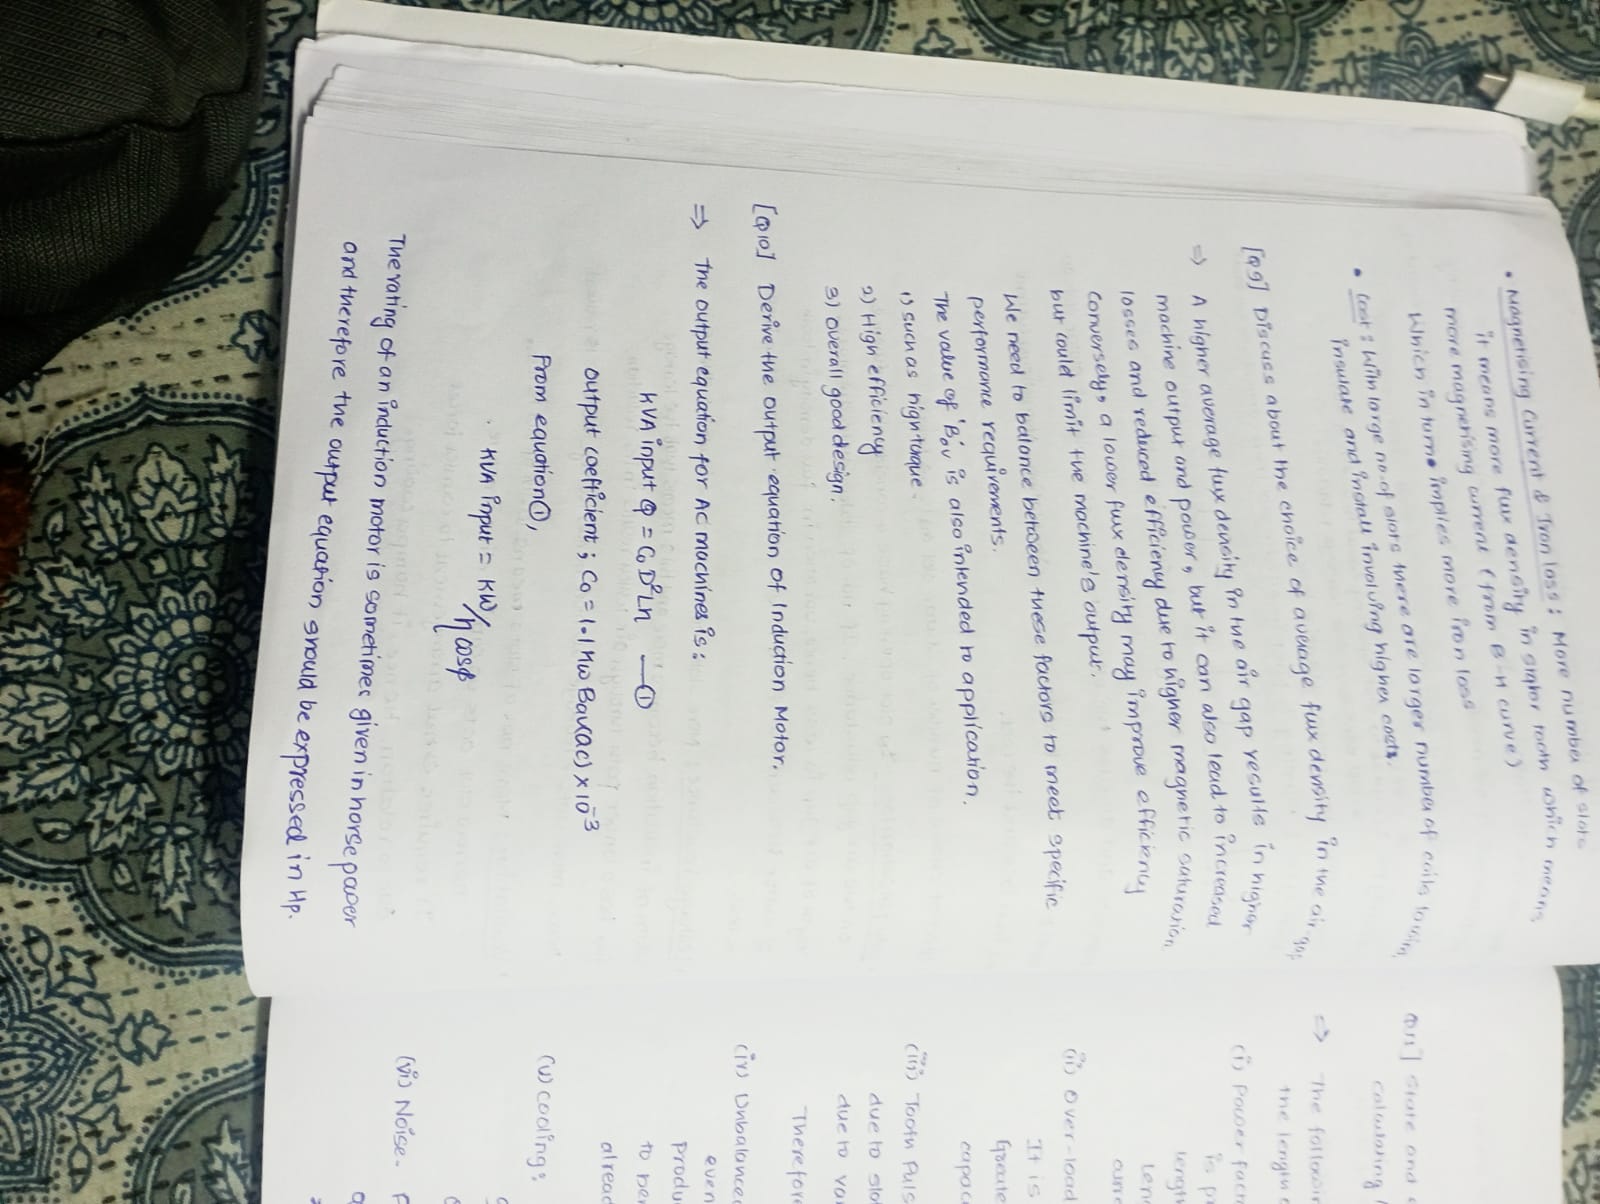 • Magnetising Current & Iron loss : More number of slots
it means more flux density in stator tooth which means
more magnetising current (from B-H curve)
Which in turn implies more iron loss
• Cost : With large no. of slots there are larger number of coils to
insulate and install involving higher costs.
[Q9] Discuss about the choice of average flux density in the air-gap
⇒ A higher average flux density in the air gap results in higher
machine output and power, but it can also lead to increased
losses and reduced efficiency due to higher magnetic saturation
Conversely, a lower flux density may improve efficiency
but could limit the machine's output.
We need to balance between these factors to meet specific
performance requirements.
The value of 'Bav' is also intended to application.
1) such as high torque.
2) High efficiency
3) Overall good design.
[Q10] Derive the output equation of Induction Motor.
⇒ The output equation for AC machines is :
KVA input Q = C₀ D²Ln —①
output coefficient ; C₀ = 1.1 Kw Bav(ac) × 10⁻³
From equation①,
KVA input = KW/η cosϕ
The rating of an induction motor is sometimes given in horse power
and therefore the output equation should be expressed in Hp.
Q11] State and
calculating
⇒ The
the length
(i) Power
is
(ii) Over-load
It is
(iii) Tooth
due to
due to
(iv)
to
(v) cooling:
(vi) Noise-